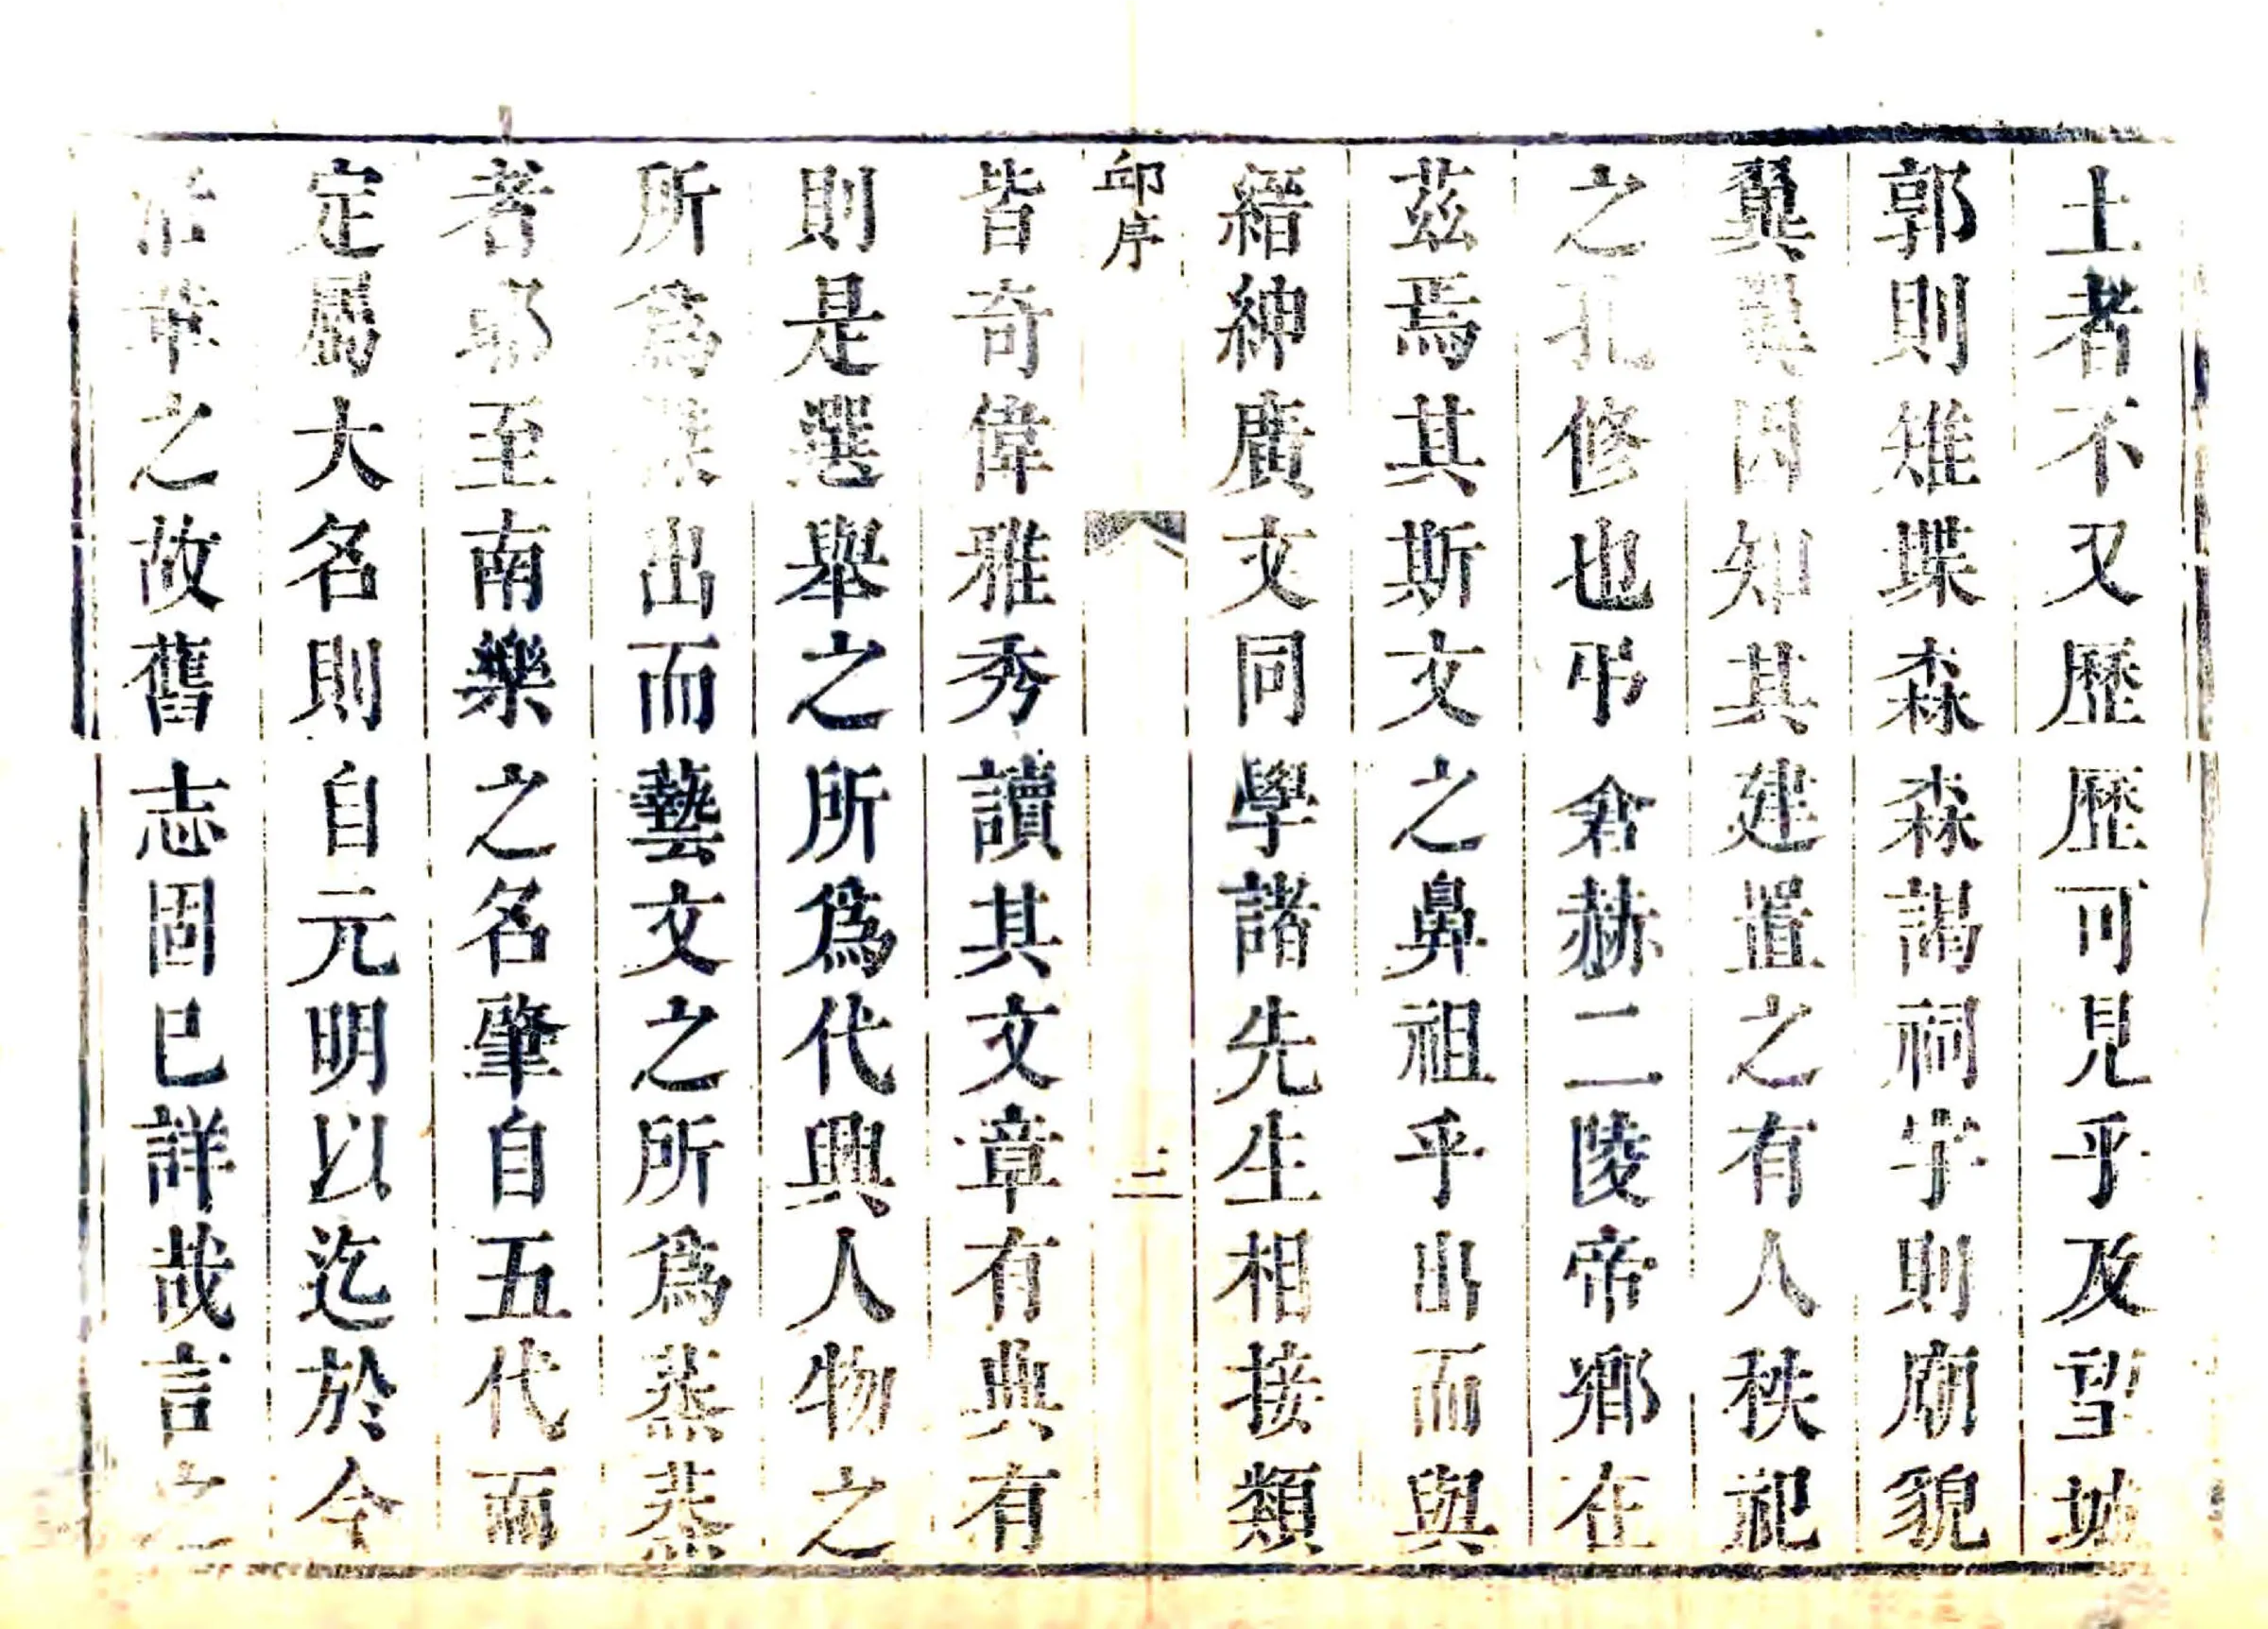 土者不又歷歷可見乎及望城
郭則雉堞森森謁祠宇則廟貌
翼翼因知其建置之有人秩祀
之孔修也弔倉赫二陵帝鄉在
茲焉其斯文之鼻祖乎出而與
縉紳廣文同學諸先生相接類
邱序
二
皆奇偉雅秀讀其文章有典有
則是選舉之所爲代興人物之
所爲傑出而藝文之所爲蒸蒸
者耶至南樂之名肇自五代而
定屬大名則自元明以迄於今
沿革之故舊志固已詳哉言之